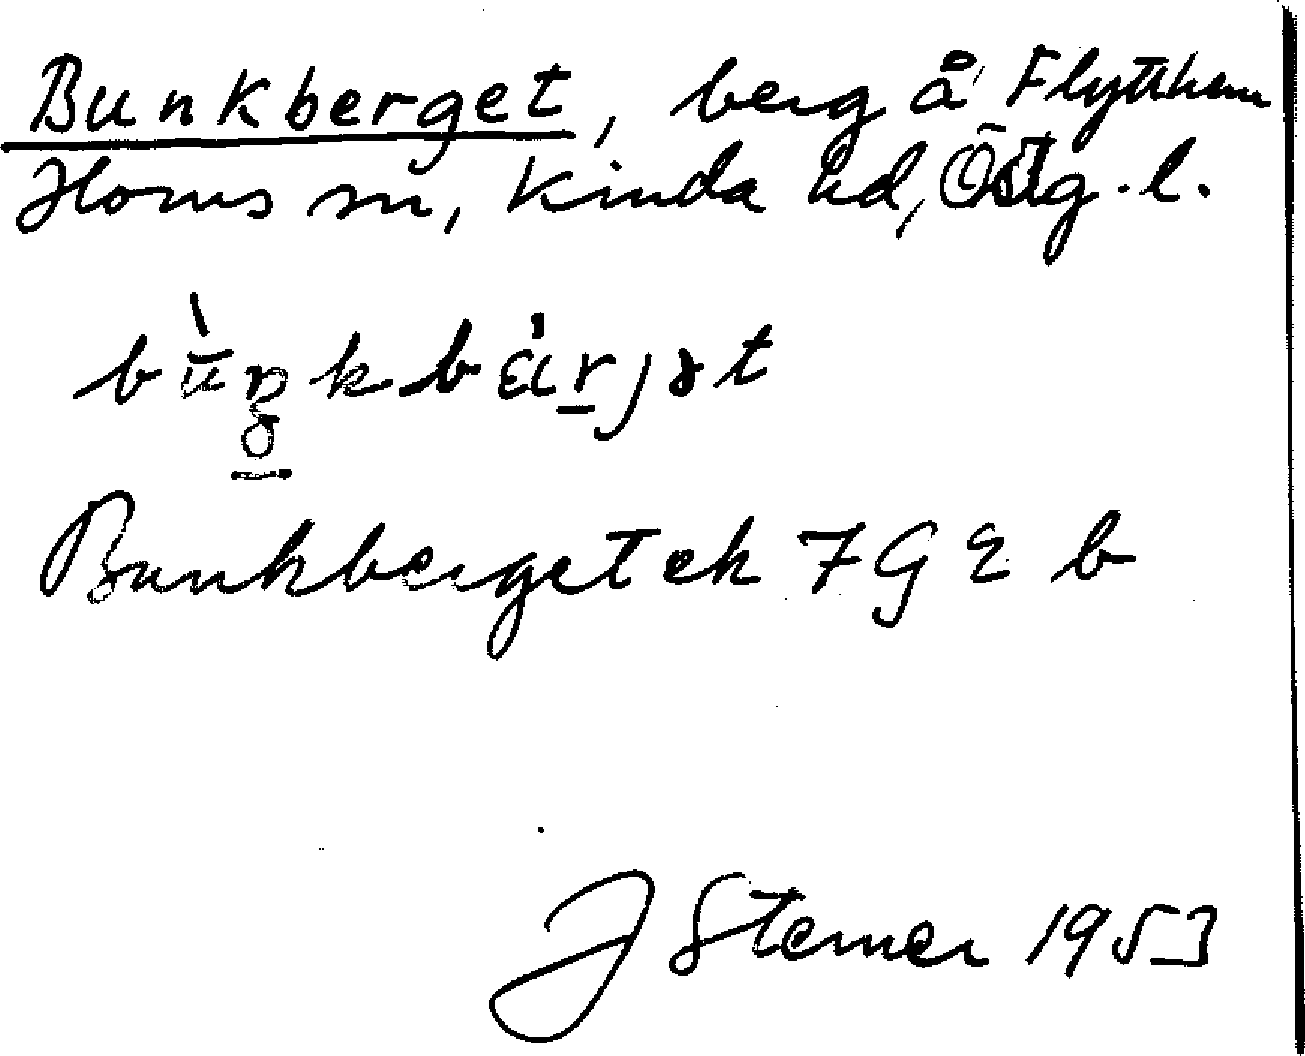 Bunkberget, berg å Flytthem
Horns sn, Kinda hd, Östg. l.
Bunkberget ek 7 G 2 b
J Sterner 1953